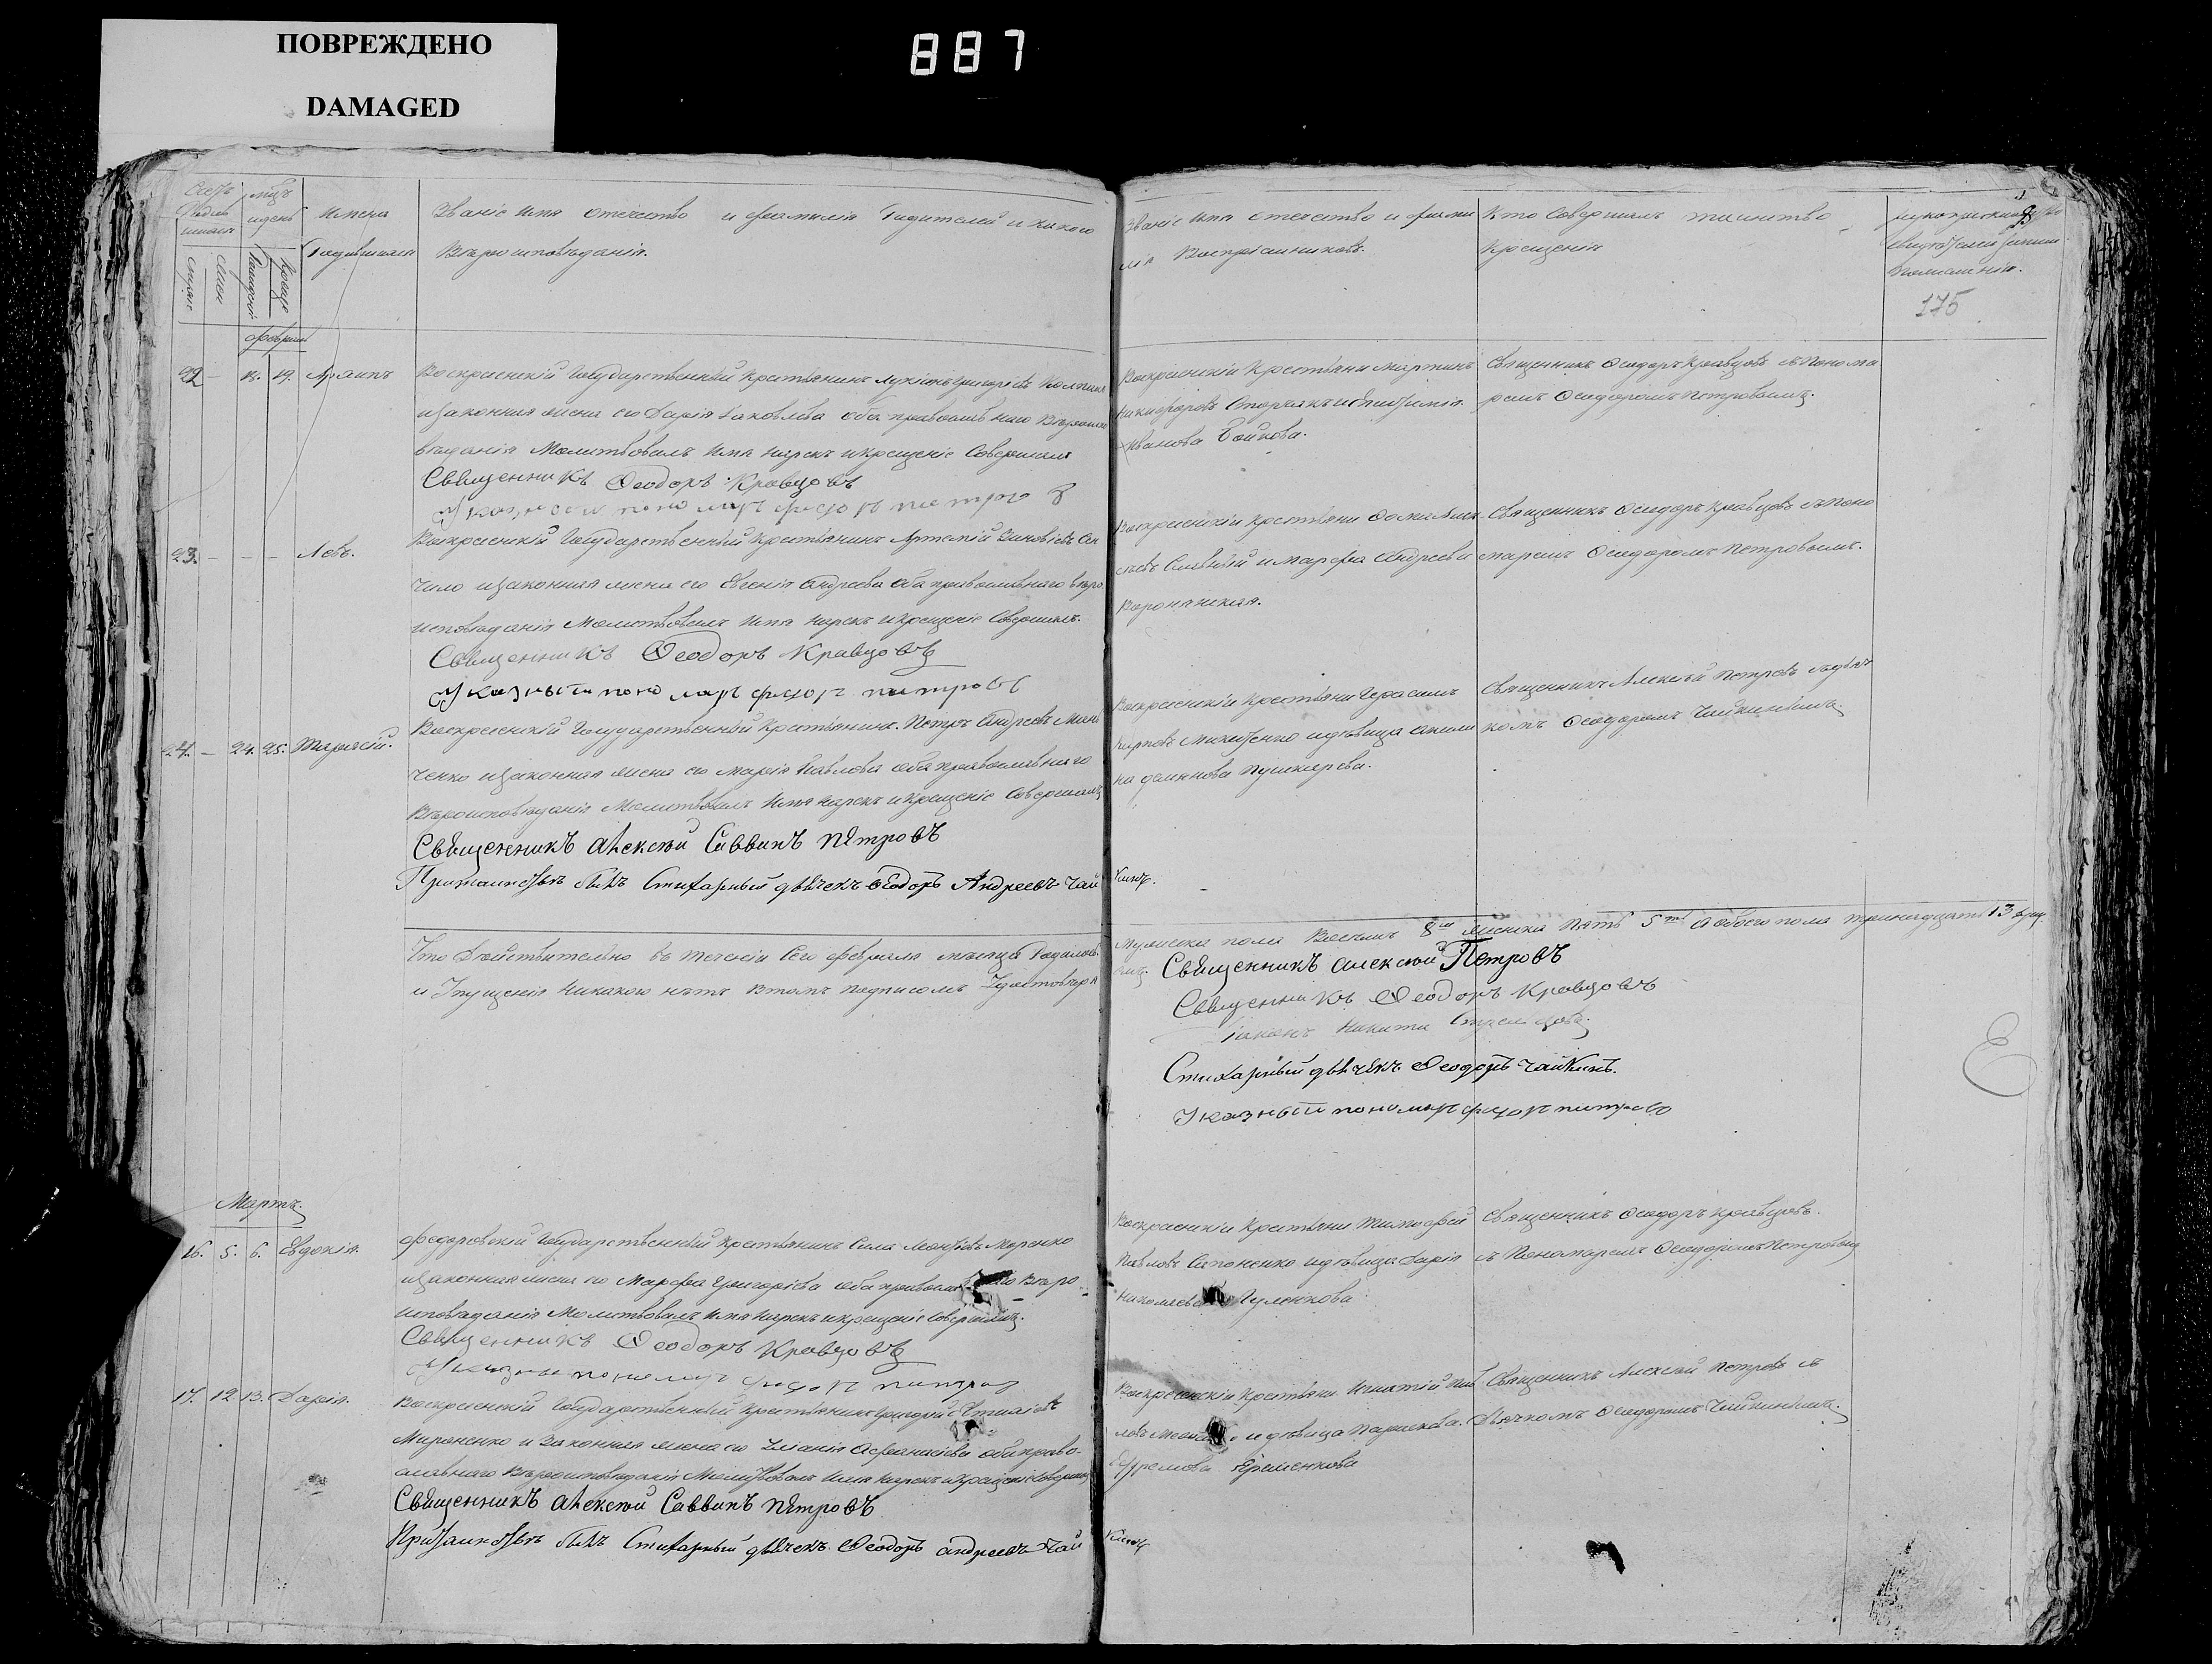 ПОВРЕЖДЕНО
DAMAGED
887
мцъ
и день
Имена
Родившихся
Званіе имя отечество и фамилія Родителей и какого
Вѣроисповѣданія.
Званіе имя отечество и фами
лія Воспріемниковъ.
Кто Совершалъ таинство
Крещенія
175
22 18. 19.
Воскресенскій Государственный Крестьянинъ
и законная жена его Дарія Іаковлева оба православнаго Вѣроиспо
вѣданія Молитвовалъ имя нарекъ и крещеніе Совершалъ
Священникъ Ѳеодоръ Кравцовъ
Указный пономарь федор петров
Воскресенскіи Крестьяни Мартинъ
Никифоровъ
Иванова Бойкова.
Священникъ Ѳеодоръ Кравцовъ съ Понома
ремъ Ѳеодоромъ Петровымъ.
23. Левъ.
Воскресенскій Государственный Крестьянинъ Артемій Зиновіевъ Сен
чило и законная жена его Евгенія Андреева оба православнаго вѣро
исповѣданія Молитвовалъ имя нарекъ и крещеніе Совершалъ.
Священникъ Ѳеодоръ Кравцовъ
Указный пономарь федор петров
Воскресенскіи Крестьяни
и Марфа Андреева
Воронянская.
Священникъ Ѳеодоръ Кравцовъ съ Поно
маремъ Ѳеодоромъ Петровымъ.
24. 24. 25. Тарасій.
Воскресенскій Государственный Крестьянинъ Петръ Андреевъ Мин
ченко и законная жена его Марія Павлова оба православнаго
Вѣроисповѣданія Молитвовалъ имя нарекъ и крещеніе Совершалъ
Священникъ Алексѣй Саввинъ Петровъ
При таинствѣ былъ Стихарный дьячекъ Ѳеодоръ Андреевъ Чай
кинъ.
Воскресенскіи Крестьяни Герасимъ
Карповъ Микитенко и дѣвица Акили
на Пушкарева.
Священникъ Алексѣй Петровъ съ дьяч
комъ Ѳеодоромъ Чайкинымъ.
Что Дѣйствительно въ теченіи Сего февраля мѣсяца Родилось
Мужеска пола Восемь 8мь женска Пять 5ть а обоего пола тринадцать 13 душ
и Упущенія никакого нѣтъ въ томъ подписомъ Удостовѣря
Священникъ Алексѣй Петровъ
Священникъ Ѳеодоръ Кравцовъ
Діаконъ Никита
Стихарный дьячекъ Ѳеодоръ Чайкинъ.
Указный пономарь федор петров
Мартъ.
16. 5. 6. Евдокія.
Федоровскій Государственный Крестьянинъ Сила Леонтьевъ Моренко
и законная жена его Марфа Григоріева оба Вѣро
исповѣданія Молитвовалъ имя нарекъ и крещеніе Совершалъ.
Священникъ Ѳеодоръ Кравцовъ
Указный пономарь федор петров
Воскресенскіи Крестьяни Тимофей
Павловъ Сапоненко и дѣвица Дарія
Николаева Гуленкова
Священникъ Ѳеодоръ Кравцовъ.
съ Пономаремъ Ѳеодоромъ Петровымъ
17. 12 13. Дарія.
Воскресенскій Государственный Крестьянинъ Григорій
Мироненко и Законная жена его Уліанія Афанасіева оба право-
славнаго Вѣроисповѣданія Молитвовалъ имя нарекъ и крещеніе Совершалъ
Священникъ Алексѣй Саввинъ Петровъ
При таинствѣ былъ Стихарный дьячекъ Ѳеодоръ Андреевъ Чай
кинъ
Воскресенскіи Крестьяни Игнатій Пав
ловъ и дѣвица Параскева.
Ефремова Еременкова
Священникъ Алексѣй Петровъ съ
Дьячкомъ Ѳеодоромъ Чайкинымъ.